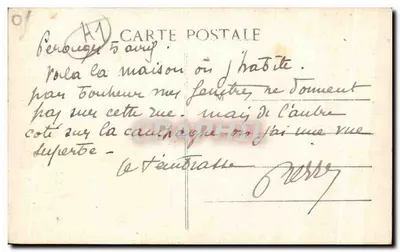 A1
CARTE POSTALE
Perouges 5 avril.
Voilà la maison où j'habite.
par bonheur mes fenêtres ne donnent
pas sur cette rue. mais de l'autre
coté sur la campagne où j'ai une vue
superbe -
Je t'embrasse